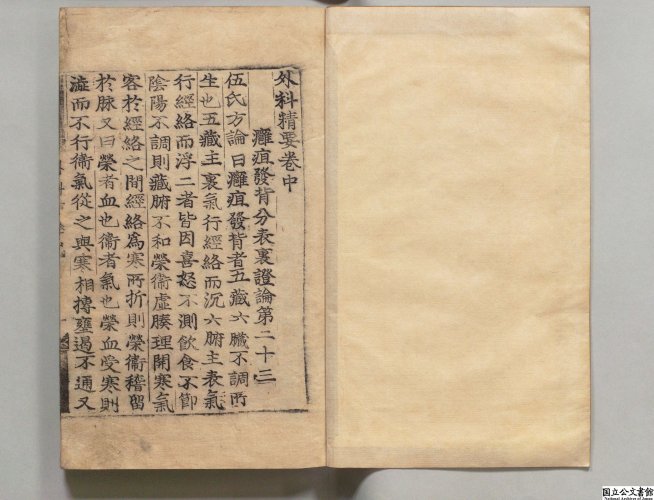 外科精要卷中
癰疽發背分表裏證論第二十三
伍氏方論曰癰疽發背者五藏六臓不調所
生也五藏主裏氣行經絡而沉六腑主表氣
行經絡而浮二者皆因喜怒不測飲食不節
陰陽不調則藏腑不和榮衞虛腠理開寒氣
客於經絡之間經絡爲寒所折則榮衞稽留
於脉又曰榮者血也衞者氣也榮血受寒則
澁而不行衞氣從之與寒相摶壅遏不通又
国立公文書館
National Archives of Japan